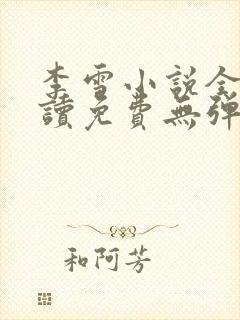 李雪小說全
讀免費無彈
和阿芳